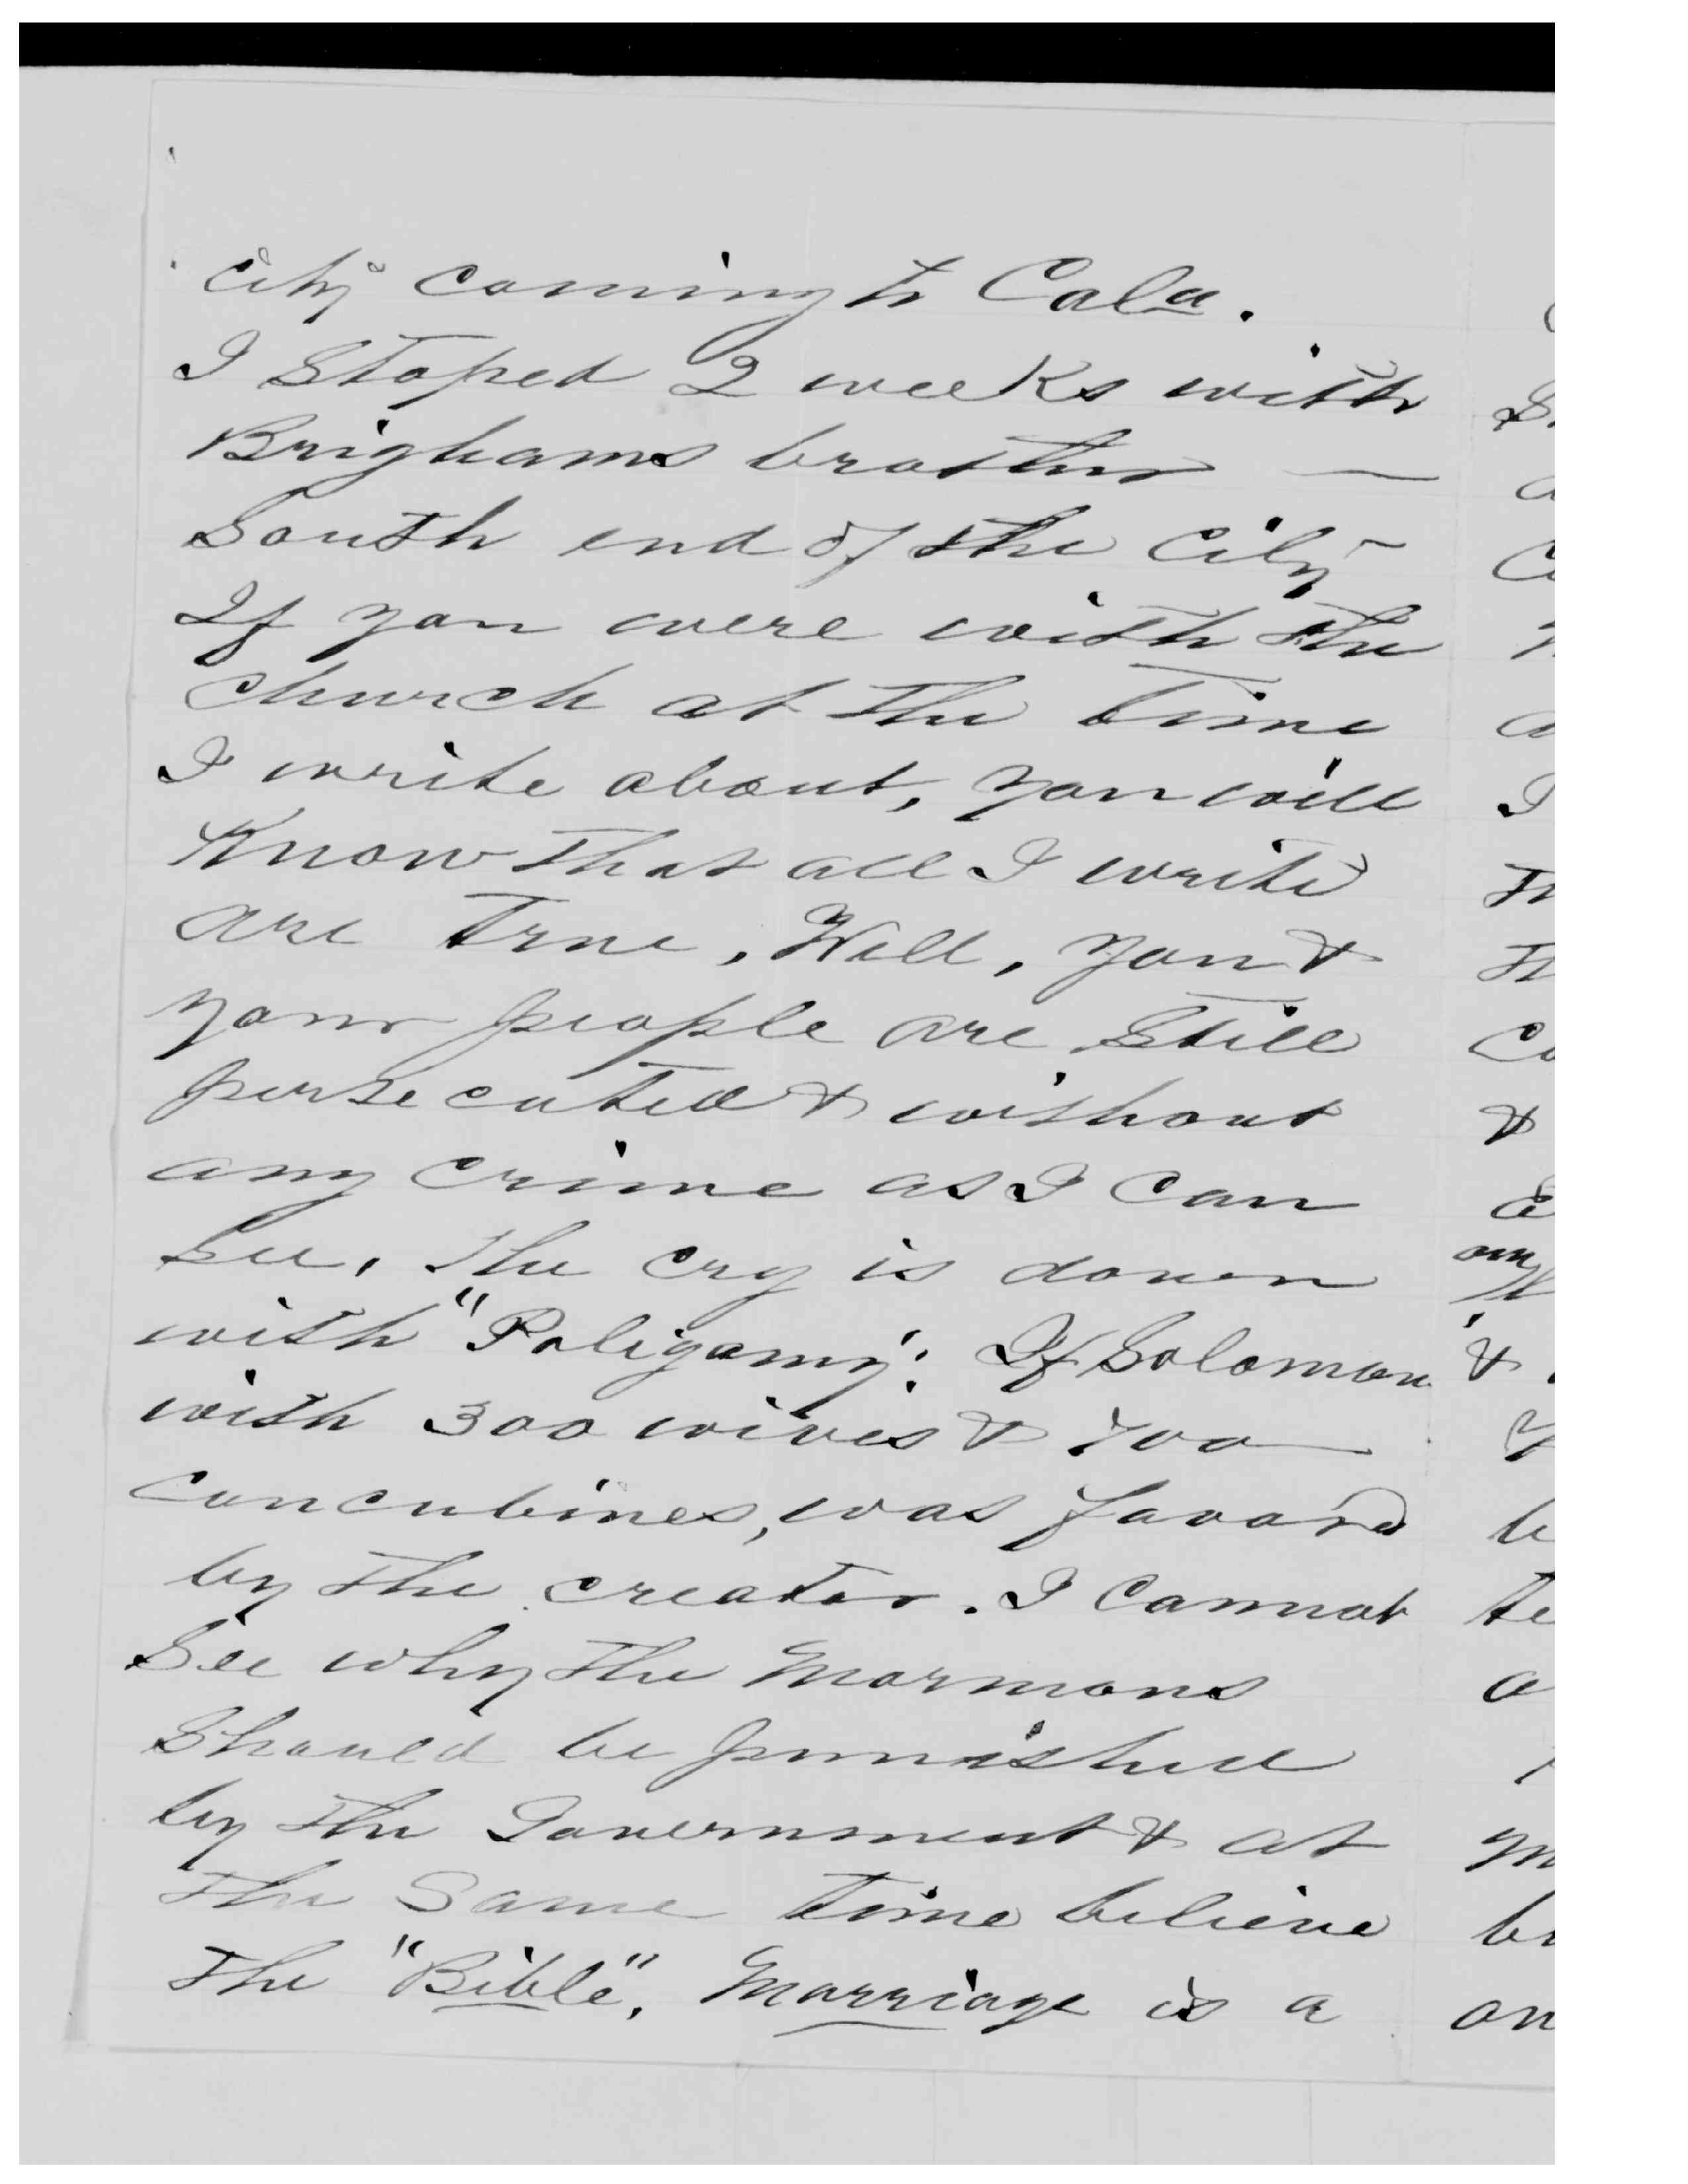 city coming to Cala.
I Stoped 2 weeks with
Brighams brother —
South end of the City
If you were with the
church at the time
I write about, you will
Know that all I write
are true, Well, you &
your people are still
persecuted & without
any crime as I can
See, the cry is down
with "Poligamy": If Solomon
with 300 wives & 700
concubines, was favord
by the creator. I cannot
See why the Mormons
Should be punished
by the Government & at
the Same time believe
the "Bible", Marriage is a